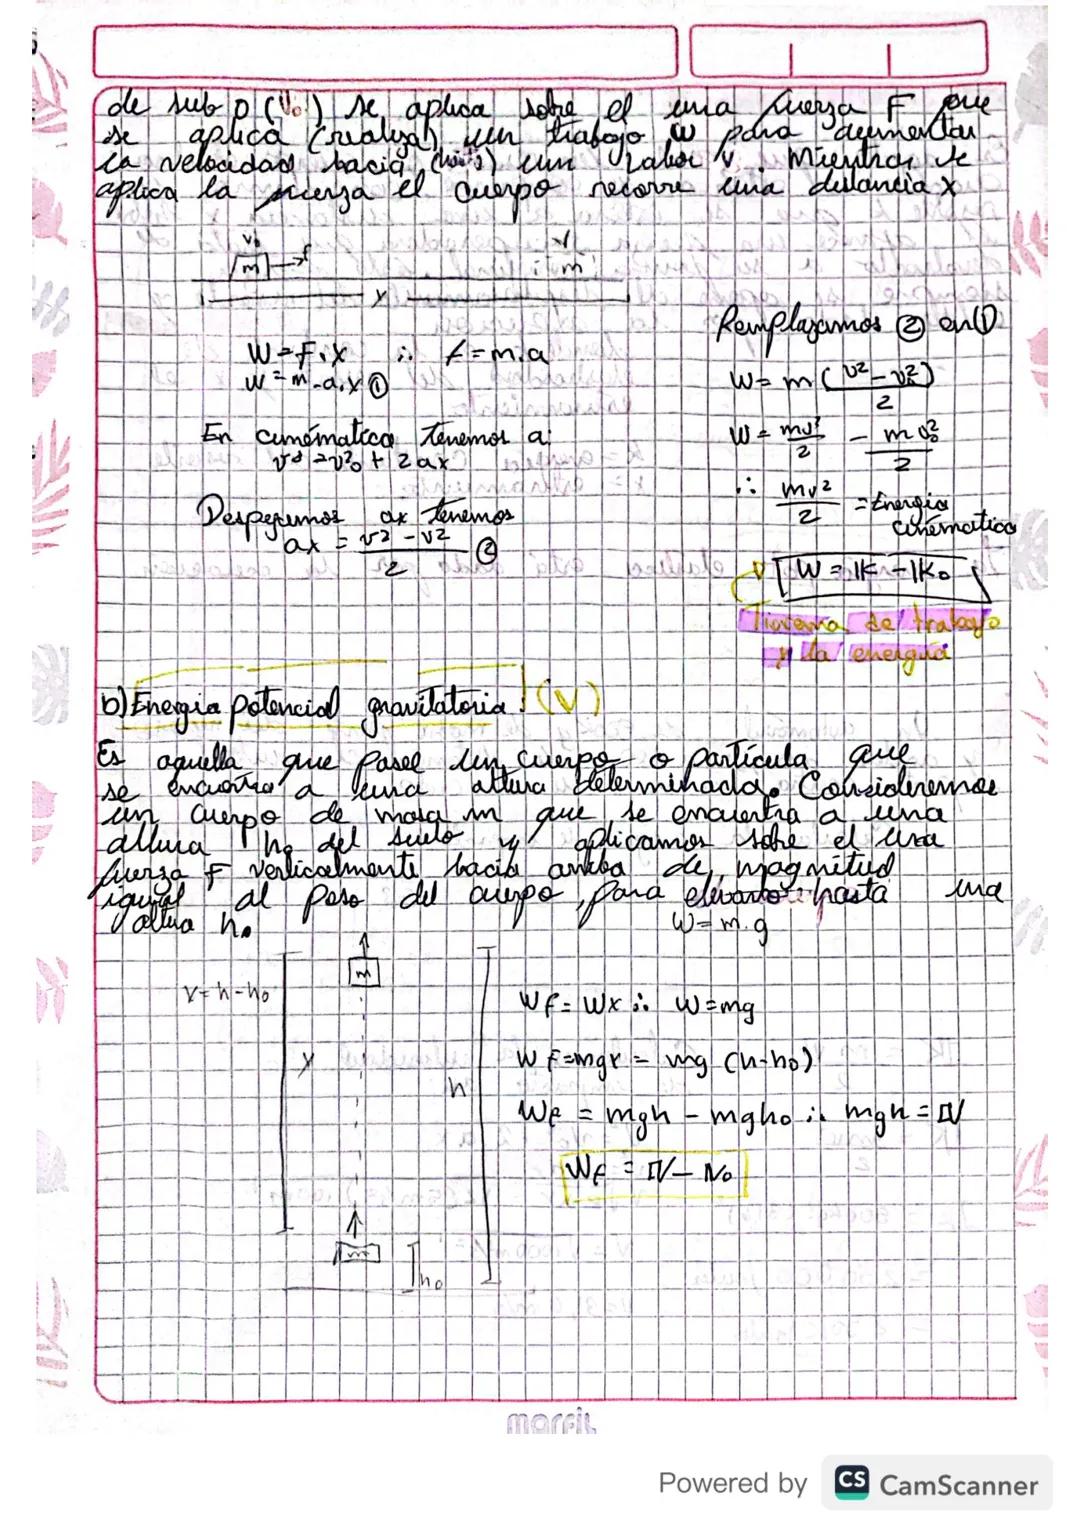 de sub 0 (V₀) se aplica sobre el una fuerza F que
se aplica (realiza) un trabajo w para aumentar
la velocidad hacia (hasta) un valor v. Mientras se
aplica la fuerza el cuerpo recorre una distancia x
V₀ V
m f m
x
W = F.x ∴ f = m.a
W = m.a.x ①
En cinématica tenemos a:
v² = v²₀ + 2ax
Despejemos ax tenemos
ax = v² - v² / 2 ②
Remplazamos ② en ①
W = m (v² - v₀²) / 2
W = mv² / 2 - mv₀² / 2
∴ mv² / 2 = Energia
cinematica
W = IK - IK₀
Tiorema de trabajo
y la energia
b) Energia potencial gravitatoria: (V)
Es aquella que posee un cuerpo o partícula que
se encuentra a una altura determinada. Consideremos
un cuerpo de masa m que se encuentra a una
altura h₀ del suelo y aplicamos sobre el una
fuerza F verticalmente hacia arriba de magnitud
igual al peso del cuerpo, para elevarlo hasta una
altura h.
W = m.g
x = h - h₀
m
x
h
m
h₀
Wf = Wx ∴ W = mg
WF = mgx = mg (h - h₀)
WF = mgh - mgh₀ ∴ mgh = IV
WF = IV - IV₀
marfil
Powered by CS CamScanner